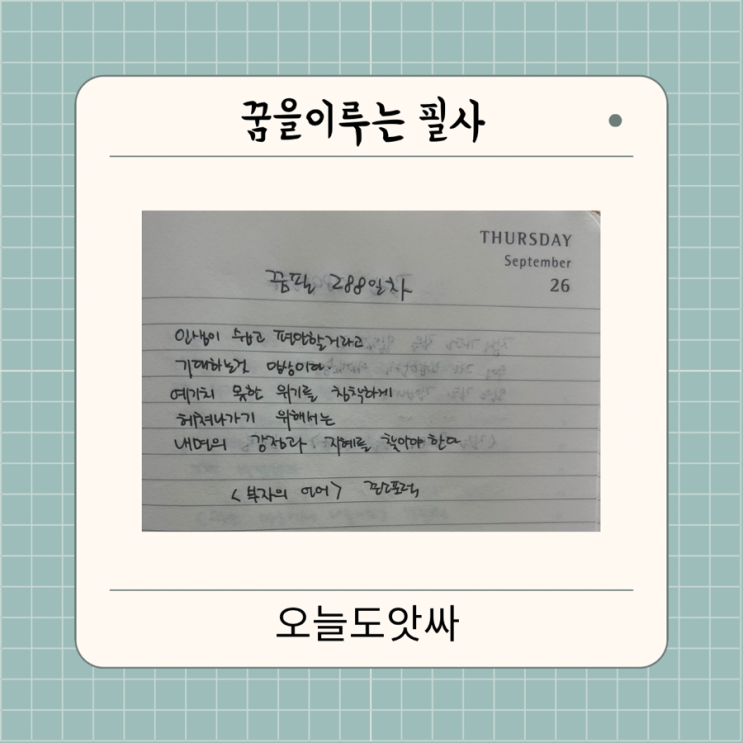 꿈을이루는 필사
THURSDAY
September
26
꿈필 288일차
인생이 쉽고 편안할거라고
기대하는건 망상이다.
예기치 못한 위기를 침착하게
헤쳐나가기 위해서는
내면의 강점과 지혜를 찾아야 한다
<부자의 언어> 존소포릭
오늘도앗싸